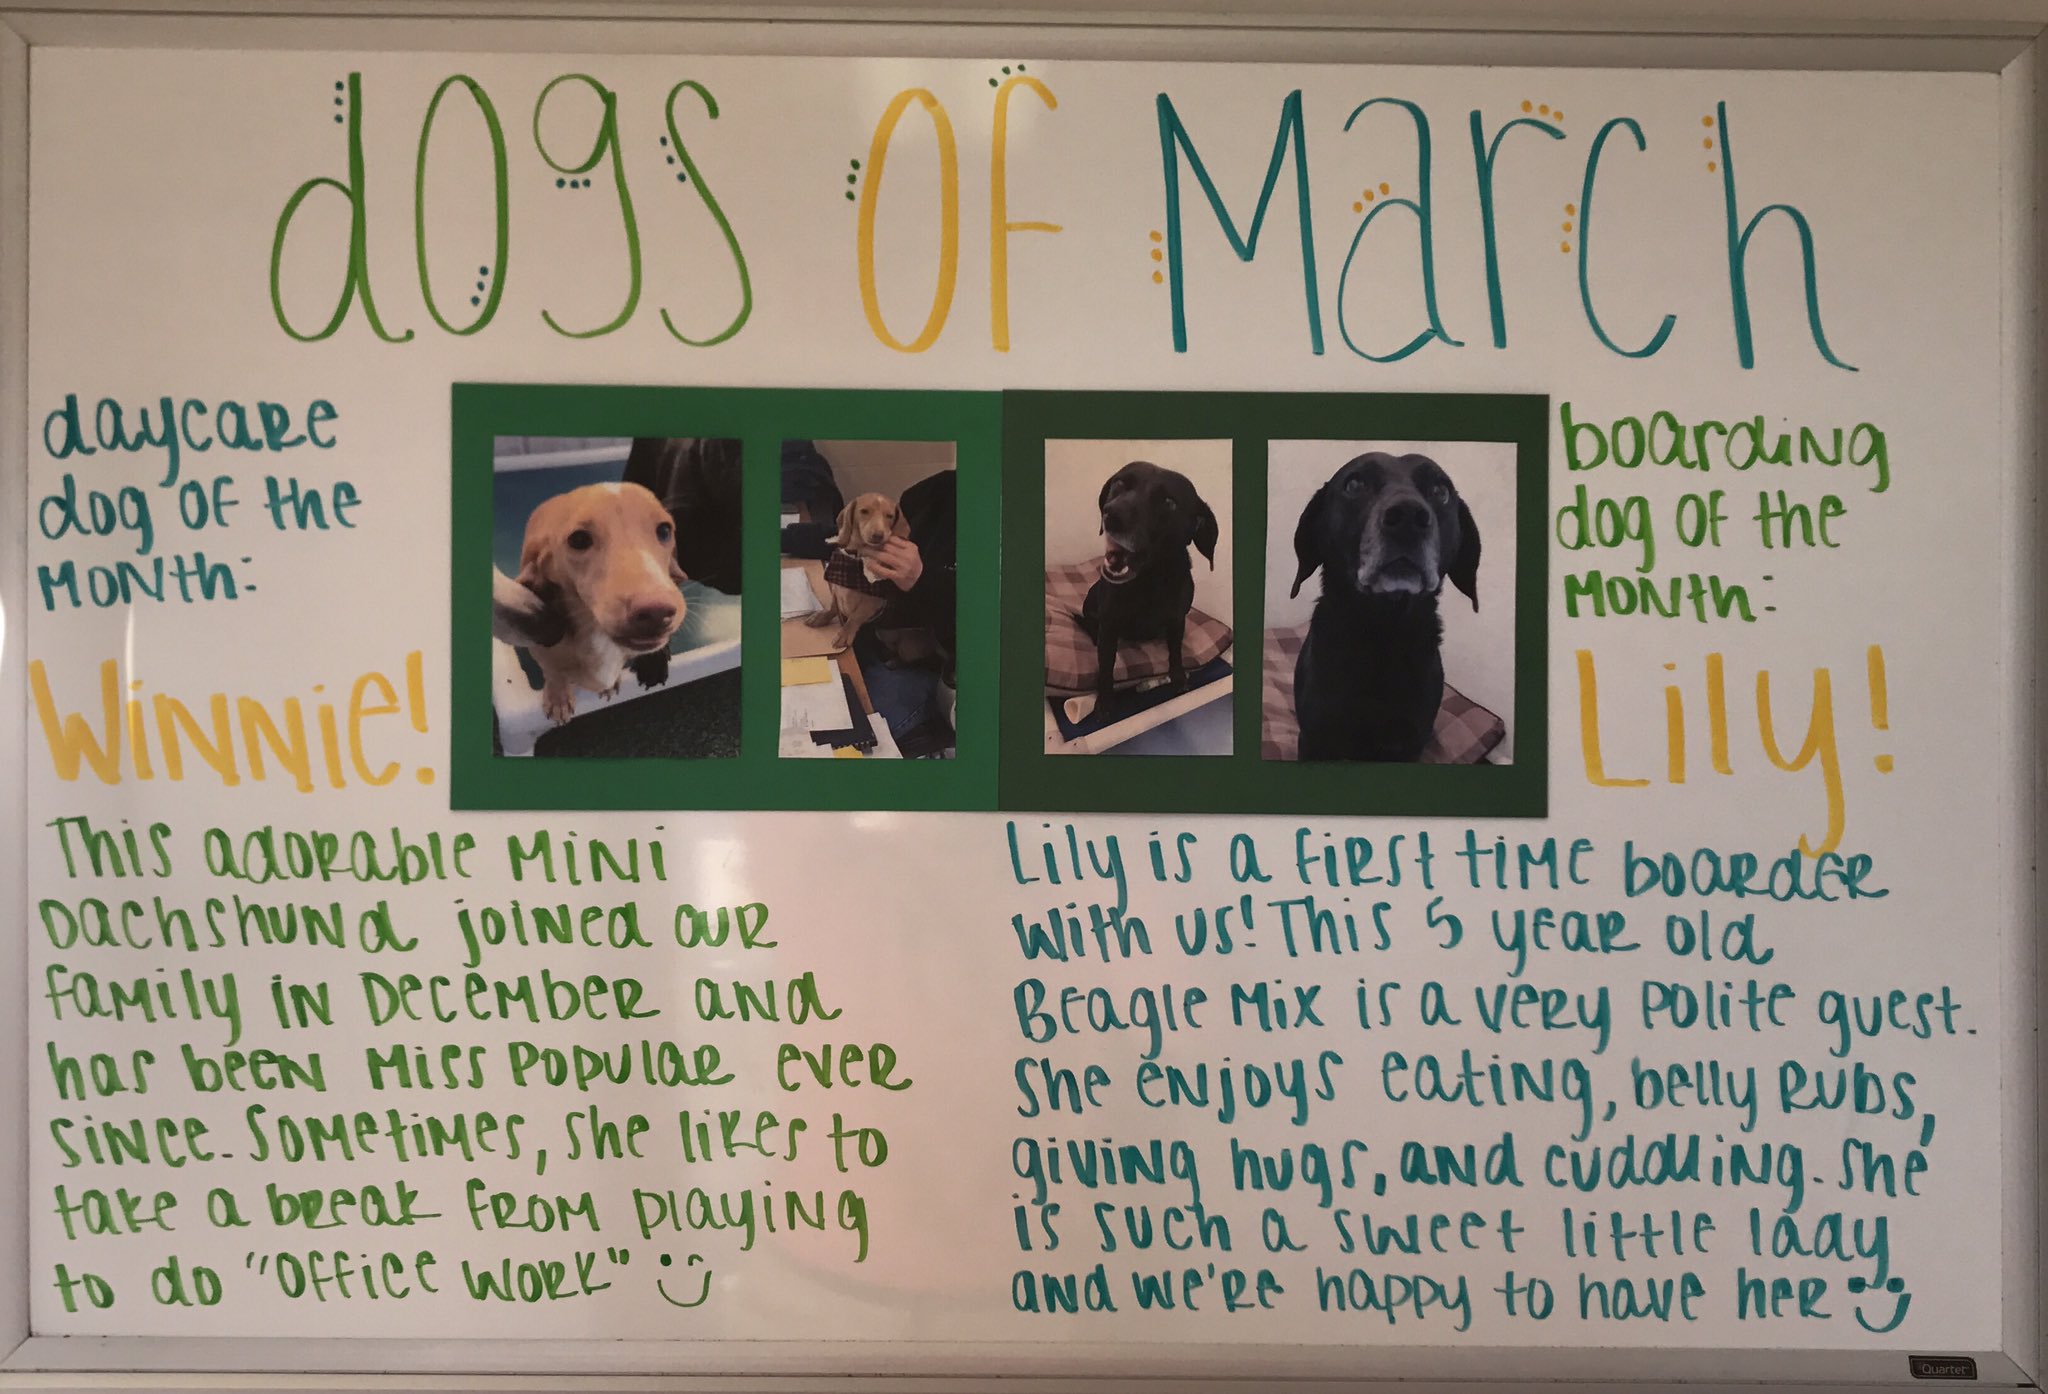 dogs of March
daycare
dog of the
month:
Winnie!
This adorable mini
Dachshund joined our
family in December and
has been Miss Popular ever
since. Sometimes, she likes to
take a break from playing
to do "office work"
boarding
dog of the
month:
Lily!
Lily is a first time boarder
with us! This 5 year old
Beagle Mix is a very polite guest.
She enjoys eating, belly rubs,
giving hugs, and cuddling. She
is such a sweet little lady
and we're happy to have her
Quartet